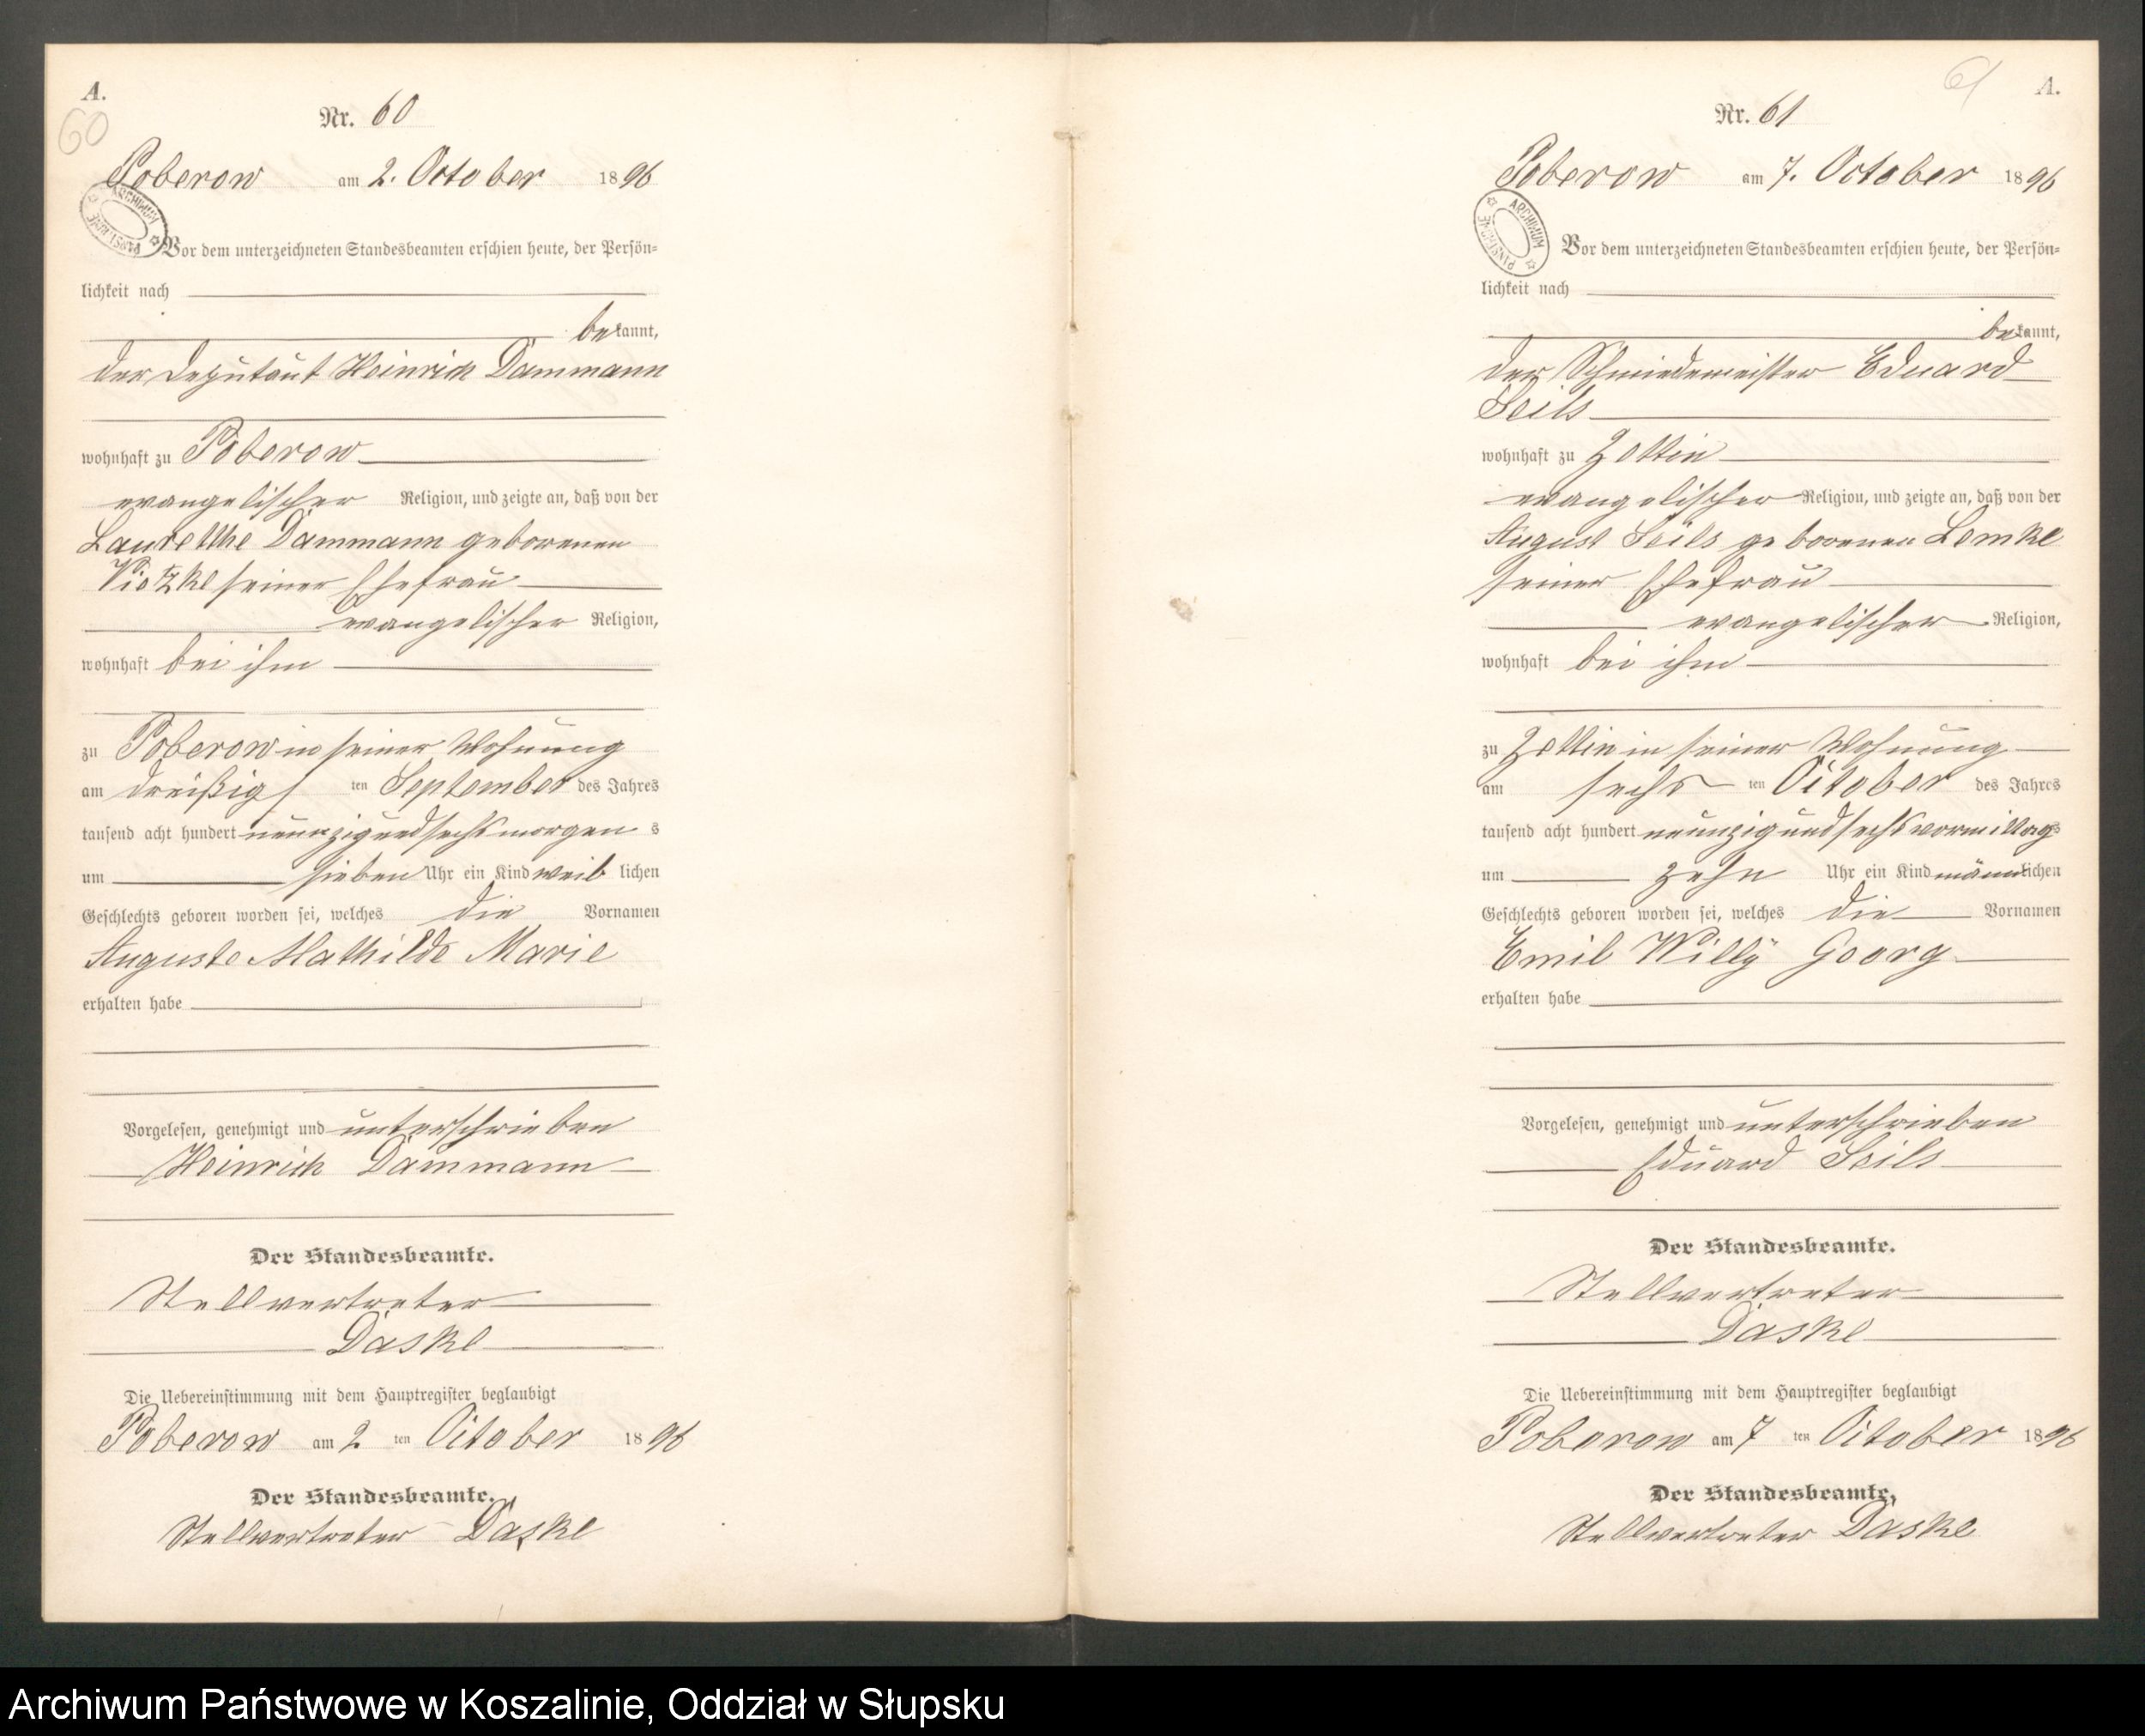 A.
60
Nr. 60
Poberow am 2. October 1896
ARCHIWUM PAŃSTWOWE
Vor dem unterzeichneten Standesbeamten erschien heute, der Persön-
lichkeit nach
bekannt,
der Deputant Heinrich Dammann
wohnhaft zu Poberow
evangelischer Religion, und zeigte an, daß von der
Laurethe Dammann geborenen
Vietzke seiner Ehefrau
evangelischer Religion,
wohnhaft bei ihm
zu Poberow in seiner Wohnung
am dreißigsten September des Jahres
tausend acht hundert neunzig und sechs morgens
um sieben Uhr ein Kind weiblichen
Geschlechts geboren worden sei, welches die Vornamen
Auguste Mathilde Marie
erhalten habe
Vorgelesen, genehmigt und unterschrieben
Heinrich Dammann
Der Standesbeamte.
Stellvertreter
Daske
Die Uebereinstimmung mit dem Hauptregister beglaubigt
Poberow am 2 ten October 1896
Der Standesbeamte.
Stellvertreter Daske
61
A.
Nr. 61
Poberow am 7. October 1896
ARCHIWUM PAŃSTWOWE
Vor dem unterzeichneten Standesbeamten erschien heute, der Persön-
lichkeit nach
bekannt,
der Schmiedemeister Eduard
Seils
wohnhaft zu Zettin
evangelischer Religion, und zeigte an, daß von der
August Seils geborenen Lemke
seiner Ehefrau
evangelischer Religion,
wohnhaft bei ihm
zu Zettin in seiner Wohnung
am sechsten October des Jahres
tausend acht hundert neunzig und sechs vormittags
um zehn Uhr ein Kind männlichen
Geschlechts geboren worden sei, welches die Vornamen
Emil Willy Georg
erhalten habe
Vorgelesen, genehmigt und unterschrieben
Eduard Seils
Der Standesbeamte.
Stellvertreter
Daske
Die Uebereinstimmung mit dem Hauptregister beglaubigt
Poberow am 7 ten October 1896
Der Standesbeamte,
Stellvertreter Daske
Archiwum Państwowe w Koszalinie, Oddział w Słupsku